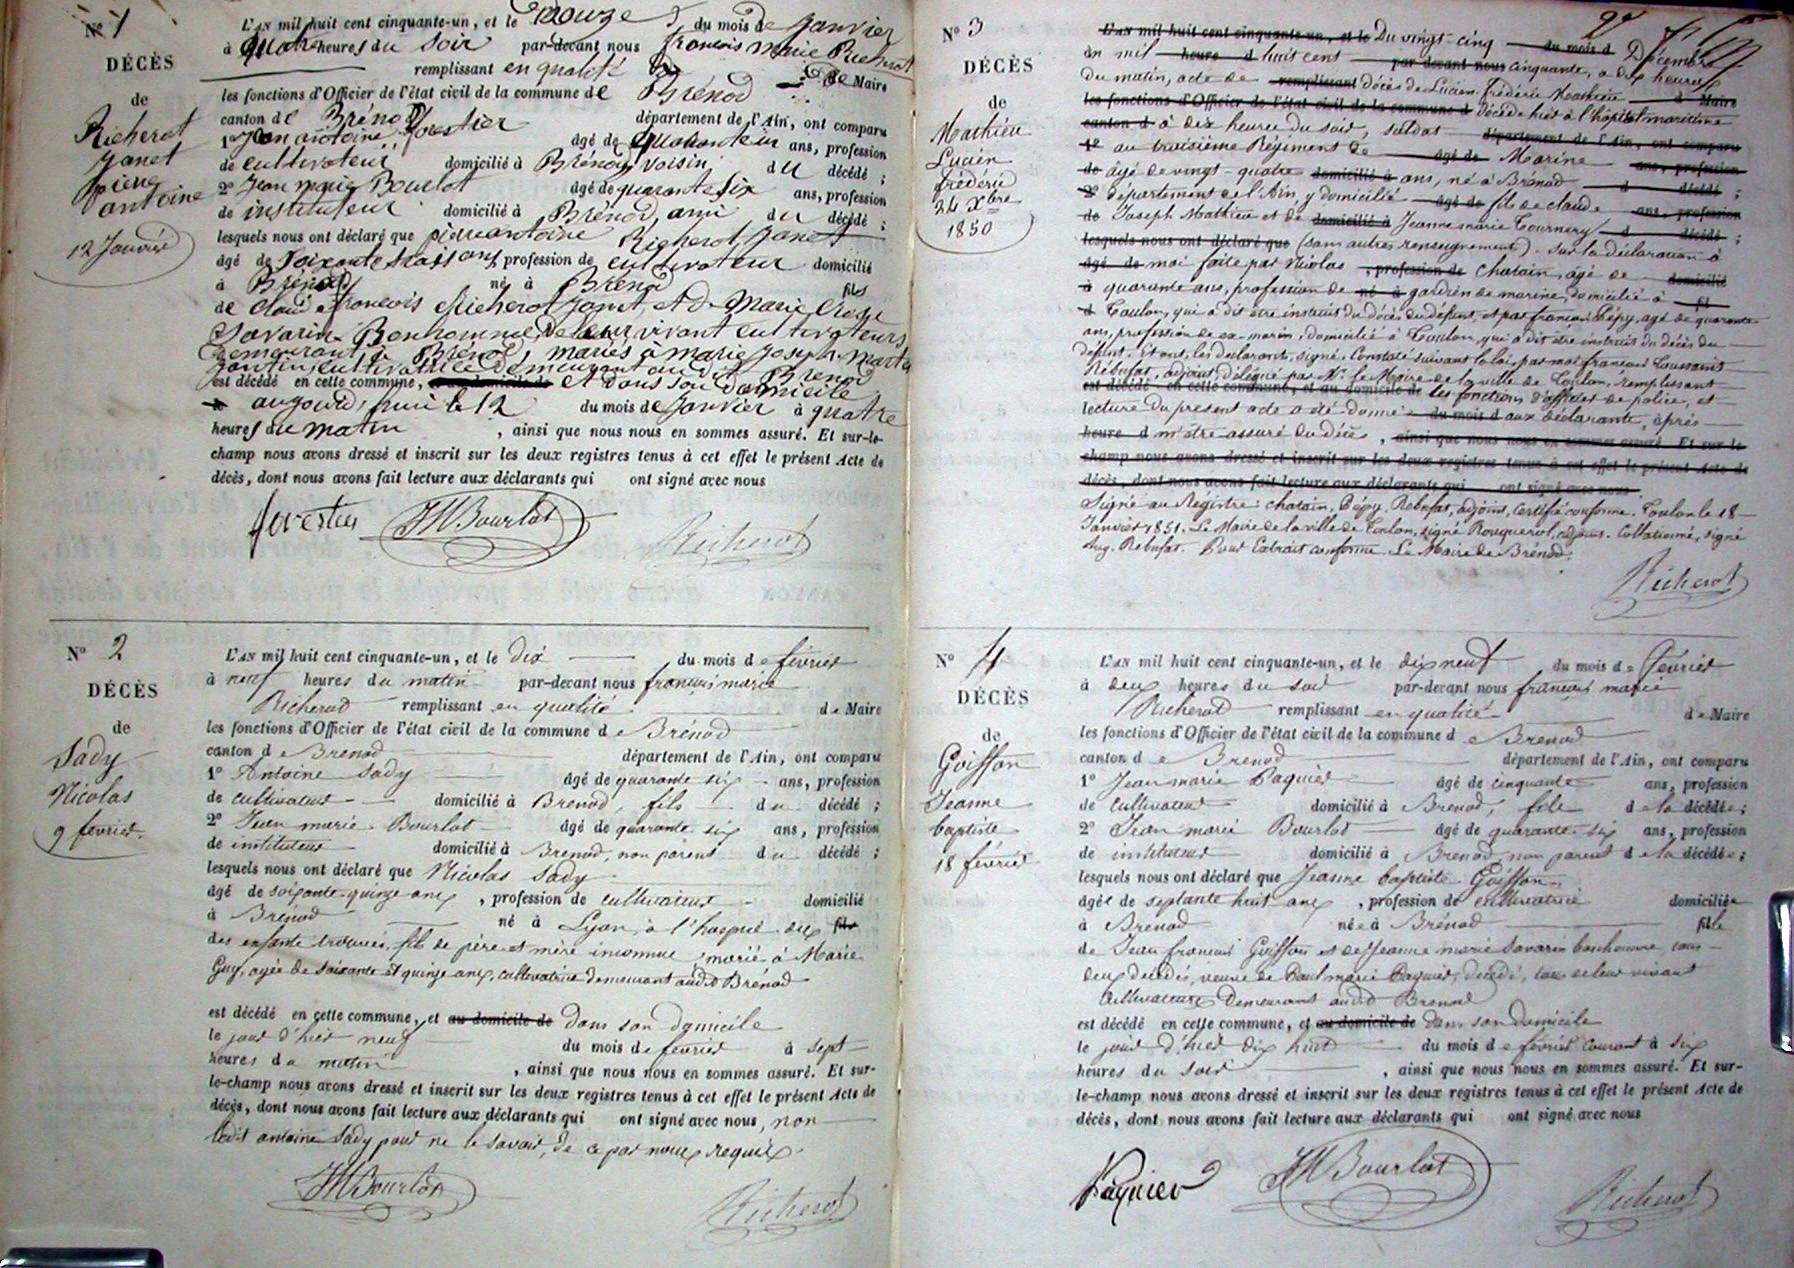 N° 1
DÉCÈS
de
Richerot
Janet
pierre
antoine
12 Janvier
L'AN mil huit cent cinquante-un, et le douze du mois de Janvier
à quatre heures du soir par-devant nous françois marie Richerot
remplissant en qualité de Maire
les fonctions d'Officier de l'état civil de la commune de Brénod
canton de Brénod département de l'Ain, ont comparu
1° Jean antoine forestier âgé de quarante un ans, profession
de cultivateur domicilié à Brénod, voisin du décédé ;
2° Jean marie Bourlot âgé de quarante six ans, profession
de instituteur domicilié à Brénod, ami du décédé ;
lesquels nous ont déclaré que pierre antoine Richerot Janet
âgé de soixante trois ans, profession de cultivateur domicilié
à Brénod né à Brénod fils
de Claude françois Richerot Janet, et de Marie
Savarin Bonhomme, de leur vivant cultivateurs
demeurant à Brénod, mariés à marie Joseph
cultivatrice demeurant au dit Brénod
est décédé en cette commune, et au domicile de et dans son domicile
aujourd'hui le 12 du mois de Janvier à quatre
heures du matin , ainsi que nous nous en sommes assuré. Et sur-le-
champ nous avons dressé et inscrit sur les deux registres tenus à cet effet le présent Acte de
décès, dont nous avons fait lecture aux déclarants qui ont signé avec nous
forestier JMBourlot Richerot
N° 2
DÉCÈS
de
Sady
Nicolas
9 fevrier.
L'AN mil huit cent cinquante-un, et le dix du mois de février
à neuf heures du matin par-devant nous françois marie
Richerot remplissant en qualité de Maire
les fonctions d'Officier de l'état civil de la commune de Brénod
canton de Brenod département de l'Ain, ont comparu
1° Antoine Sady âgé de quarante six ans, profession
de cultivateur domicilié à Brenod, fils du décédé ;
2° Jean marie Bourlot âgé de quarante six ans, profession
de instituteur domicilié à Brenod, non parent du décédé ;
lesquels nous ont déclaré que Nicolas Sady
âgé de soixante-quinze ans , profession de cultivateur domicilié
à Brénod né à Lyon, à l'hospice des fils
des enfants trouvés, fils de père et mère inconnus, marié à Marie
Guy, agée de soixante et quinze ans, cultivatrice demeurant audit Brénod
est décédé en cette commune, et au domicile de dans son domicile
le jour d'hier neuf du mois de février à sept
heures du matin , ainsi que nous nous en sommes assuré. Et sur-
le-champ nous avons dressé et inscrit sur les deux registres tenus à cet effet le présent Acte de
décès, dont nous avons fait lecture aux déclarants qui ont signé avec nous, non
ledit antoine Sady pour ne le savoir, de ce par nous requis.
JMBourlot Richerot
N° 3
DÉCÈS
de
Mathieu
Lucien
frédéric
24 Xbre
1850
L'AN mil huit cent cinquante-un, et le Du vingt-cinq du mois d Décembre
an mil heure d huit cent par-devant nous cinquante, à dix heures
du matin, acte de remplissant décès de Lucien frédéric Mathieu d Maire
les fonctions d'Officier de l'état civil de la commune d décédé hier à l'hôpital maritime
canton d à dix heures du soir, soldat département de l'Ain, ont comparu
1° au troisième Régiment de âgé de Marine ans, profession
de âgé de vingt-quatre domicilié à ans, né à Brénod d décédé ;
2° département de l'Ain, y domicilié âgé de fils de claude ans, profession
de Joseph Mathieu et de domicilié à Jeanne marie Tournery d décédé ;
lesquels nous ont déclaré que (sans autres renseignements). Sur la déclaration à
âgé de moi faite par Nicolas , profession de chatain, agé de domicilié
à quarante ans, profession de né à gardien de marine, domicilié à fil
d Toulon, qui a dit être instruit du décès du défunt, et par françois Pépy, agé de quarante
ans, profession de ex-marin, domicilié à Toulon, qui a dit être instruit du décès du
défunt. Et ont, les déclarants, signé. Constaté suivant la loi, par moi françois Toussaint
Rebufat, adjoint délégué par Mr. le Maire de la ville de Toulon, remplissant
est décédé en cette commune, et au domicile de les fonctions d'officier de police, et
lecture du present acte a été donnée du mois d aux déclarants, après
heure d m'être assuré du décès , ainsi que nous nous en sommes assuré. Et sur-le-
champ nous avons dressé et inscrit sur les deux registres tenus à cet effet le présent Acte de
décès, dont nous avons fait lecture aux déclarants qui ont signé avec nous.
Signé au Registre : chatain, Pépy, Rebufat, adjoint. Certifié conforme. Toulon le 18
Janvier 1851. Le Maire de la ville de Toulon, signé Rouquerol, adjoint. Collationné, signé
Aug. Rebufat. Pour Extrait conforme. Le Maire de Brénod.
Richerot
N° 4
DÉCÈS
de
Goiffon
Jeanne
baptiste
18 février
L'AN mil huit cent cinquante-un, et le dix neuf du mois de février
à deux heures du soir par-devant nous françois marie
Richerot remplissant en qualité de Maire
les fonctions d'Officier de l'état civil de la commune de Brenod
canton de Brenod département de l'Ain, ont comparu
1° Jean marie Paquier âgé de cinquante ans, profession
de cultivateur domicilié à Brenod, fils de la décédée ;
2° Jean marie Bourlot âgé de quarante six ans, profession
de instituteur domicilié à Brenod, non parent de la décédée ;
lesquels nous ont déclaré que Jeanne baptiste Goiffon
âgée de septante huit ans , profession de cultivatrice domiciliée
à Brenod née à Brénod fille
de Jean francois Goiffon et de Jeanne marie Savarin bonhomme tous
deux décédés, veuve de Paul marie Paquier, décédé, tous de leur vivant
cultivateurs demeurant audit Brenod
est décédé en cette commune, et au domicile de dans son domicile
le jour d'hier dix huit du mois de février courant à six
heures du soir , ainsi que nous nous en sommes assuré. Et sur-
le-champ nous avons dressé et inscrit sur les deux registres tenus à cet effet le présent Acte de
décès, dont nous avons fait lecture aux déclarants qui ont signé avec nous
Paquier JMBourlot Richerot